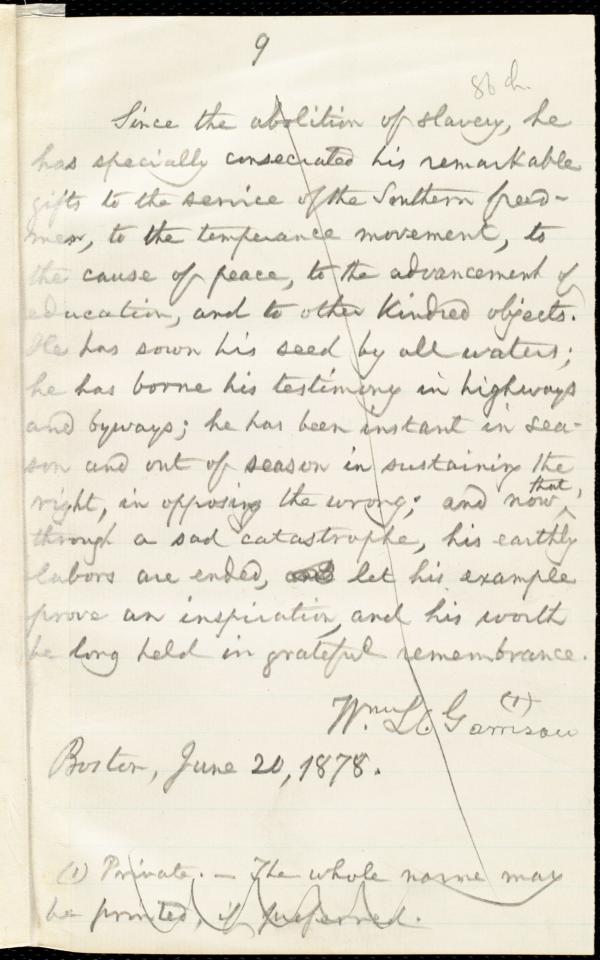 9
86 ch.
Since the abolition of slavery, he
has specially consecrated his remarkable
gifts to the service of the Southern freed-
men, to the temperance movement, to
the cause of peace, to the advancement of
education, and to other kindred objects.
He has sown his seed by all waters;
he has borne his testimony in highways
and byways; he has been instant in sea-
son and out of season in sustaining the
right, in opposing the wrong; and now that,
through a sad catastrophe, his earthly
labors are ended, let his example
prove an inspiration, and his worth
be long held in grateful remembrance.
Wm. L. Garrison (1)
Boston, June 20, 1878.
(1) Private. — The whole name may
be printed, if preferred.